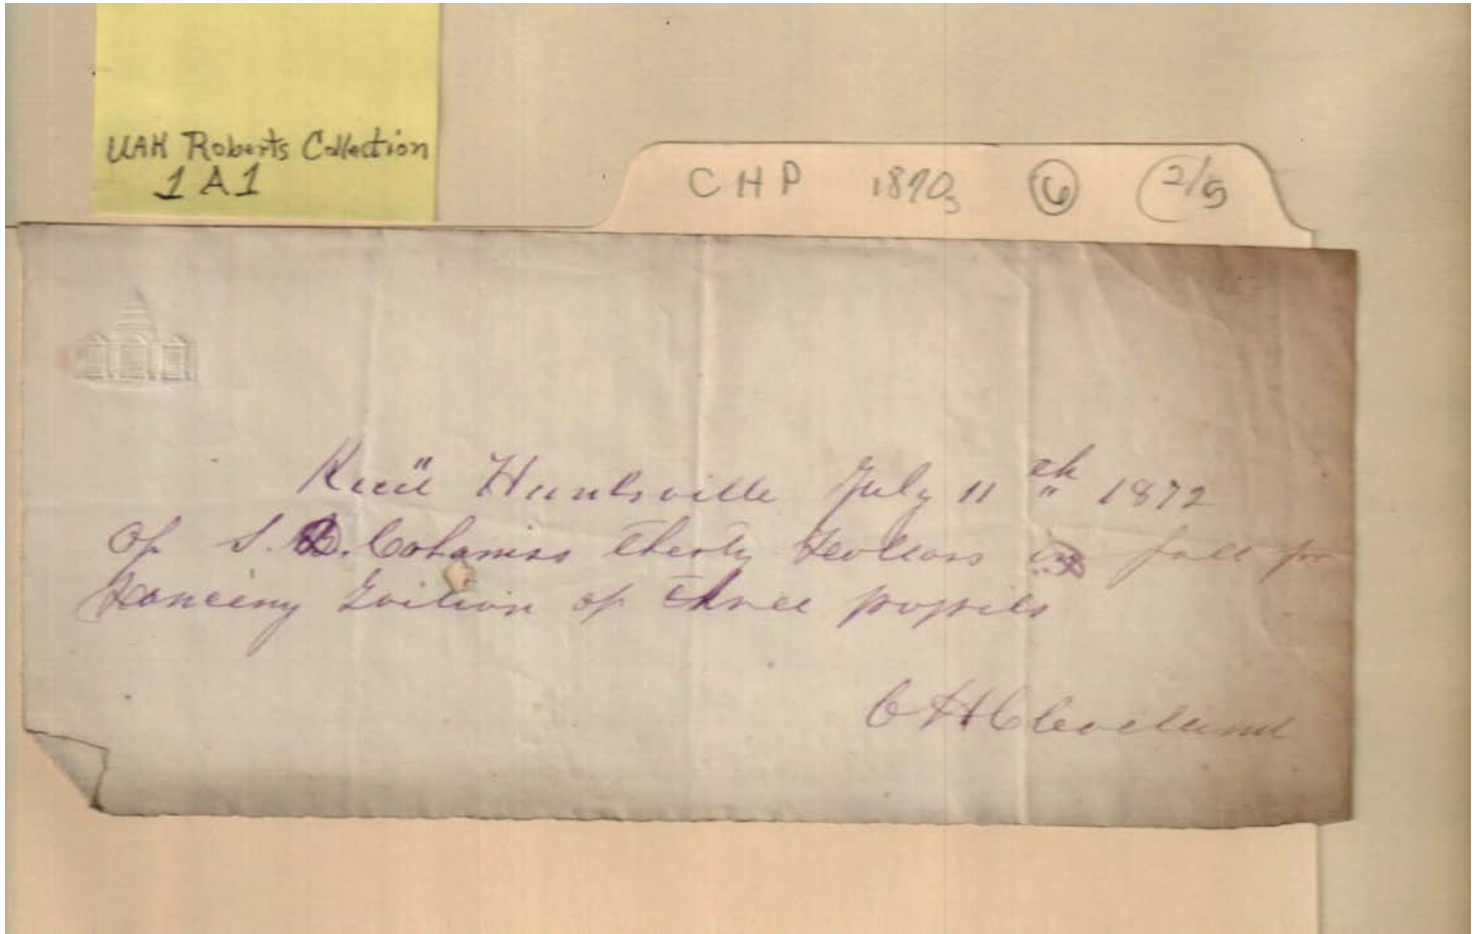 UAH Roberts Collection
1A1
CHP 1870s 6 2/5
Recd Huntsville July 11th 1872
Of S. D. Cabaniss thirty dollars in full for
Dancing Tuition of three pupils
C H Cleveland